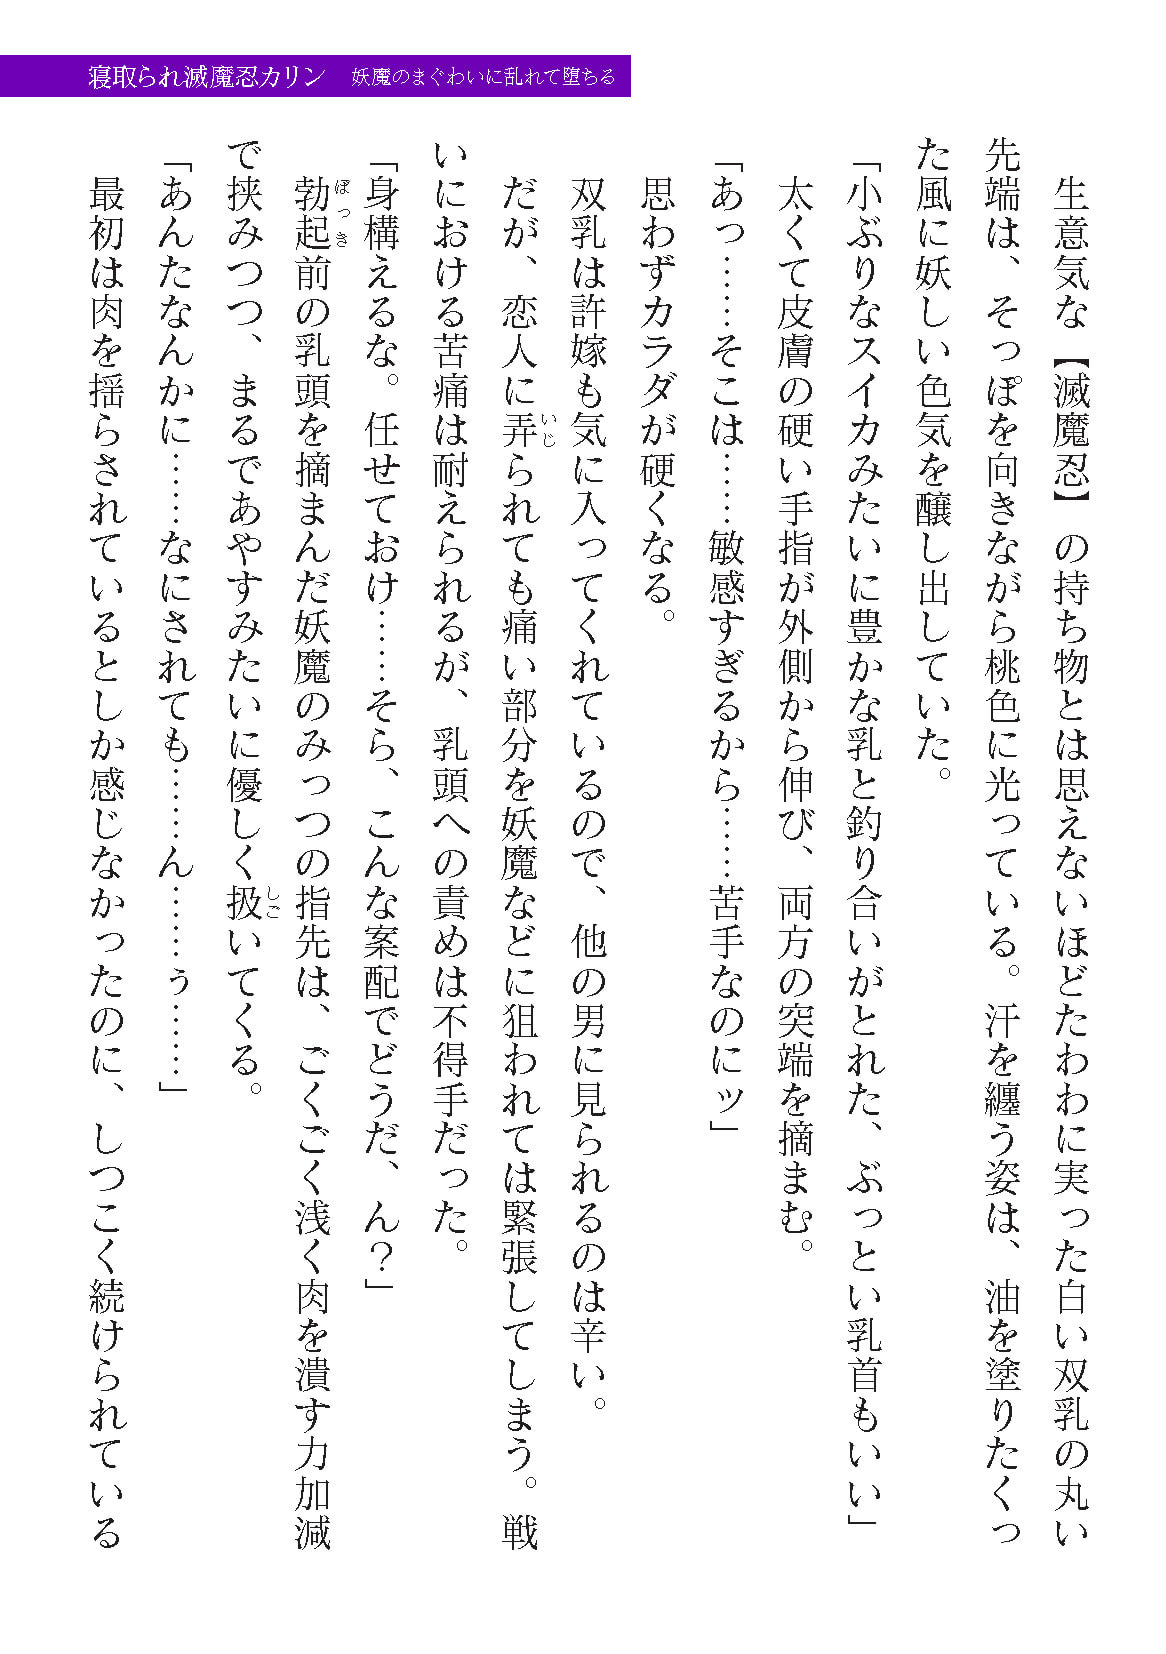 寝取られ滅魔忍カリン　妖魔のまぐわいに乱れて堕ちる
　生意気な【滅魔忍】の持ち物とは思えないほどたわわに実った白い双乳の丸い
先端は、そっぽを向きながら桃色に光っている。汗を纏う姿は、油を塗りたくっ
た風に妖しい色気を醸し出していた。
「小ぶりなスイカみたいに豊かな乳と釣り合いがとれた、ぶっとい乳首もいい」
　太くて皮膚の硬い手指が外側から伸び、両方の突端を摘まむ。
「あっ……そこは……敏感すぎるから……苦手なのにッ」
　思わずカラダが硬くなる。
　双乳は許嫁も気に入ってくれているので、他の男に見られるのは辛い。
　だが、恋人に弄られても痛い部分を妖魔などに狙われては緊張してしまう。戦
いじ
いにおける苦痛は耐えられるが、乳頭への責めは不得手だった。
「身構えるな。任せておけ……そら、こんな案配でどうだ、ん？」
　勃起前の乳頭を摘まんだ妖魔のみっつの指先は、ごくごく浅く肉を潰す力加減
ぼっき
で挟みつつ、まるであやすみたいに優しく扱いてくる。
しご
「あんたなんかに……なにされても……ん……ぅ……」
　最初は肉を揺らされているとしか感じなかったのに、しつこく続けられている